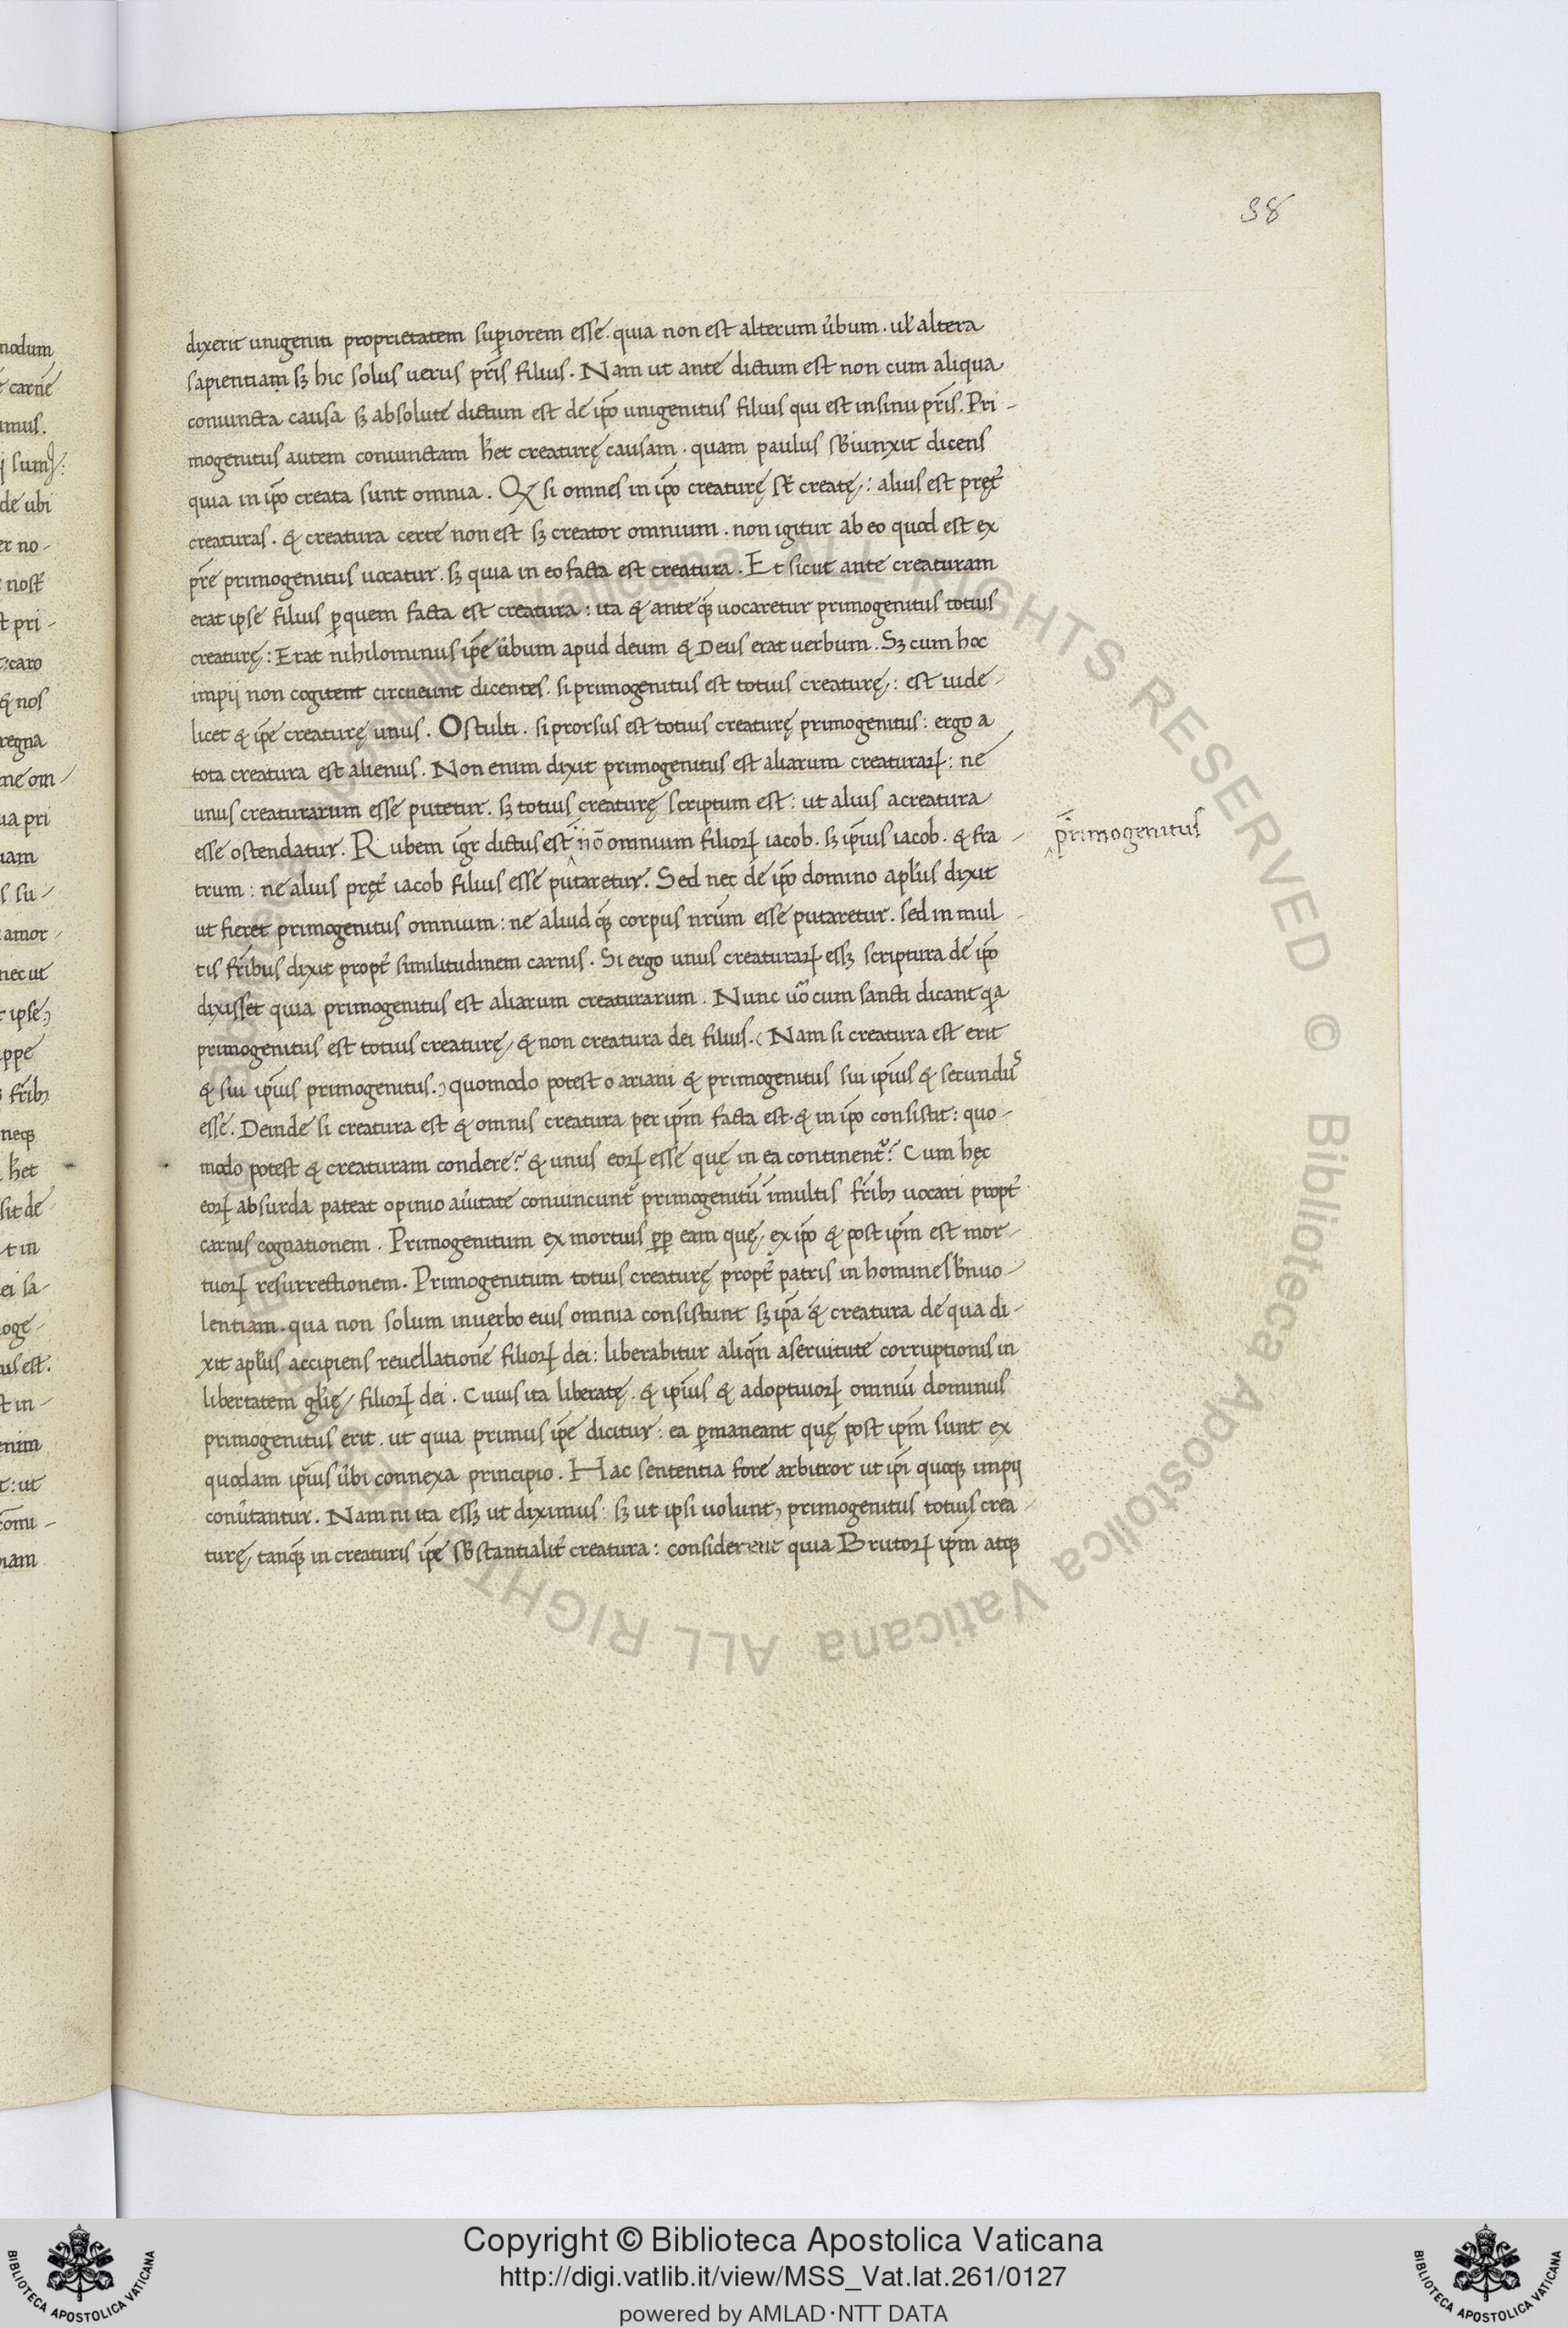 38
dixerit unigeniti proprietatem sup̱iorem esse. quia non est alterum ůbum. uł altera
sapientiam sꝫ hic solus uerus pr̄is filius. Nam ut ante dictum est non cum aliqua
coniuncta causa sꝫ absolute dictum est de ip̄o unigenitus filius qui est insinu pr̄is. Pri-
mogenitus autem coniunctam h̄et creaturę causam. quam paulus sƀiunxit dicens
quia in ip̄o creata sunt omnia. Qđ si omnes in ip̄o creaturę st̄ creatę: alius est pręt̄
creaturas. & creatura certe non est sꝫ creator omnium. non igitur ab eo quod est ex
pr̄e primogenitus uocatur. sꝫ quia in eo facta est creatura. Et sicut ante creaturam
erat ipse filius ꝑquem facta est creatura: ita & ante q̄ꝫ uocaretur primogenitus totius
creaturę: Erat nihilominus ip̄e ůbum apud deum & Deus erat uerbum. Sꝫ cum hoc
impij non cogitent circueunt dicentes. si primogenitus est totius creaturę: est uide-
licet & ip̄e creaturę unus. Ostulti. si prorsus est totius creaturę primogenitus: ergo a
tota creatura est alienus. Non enim dixit primogenitus est aliarum creaturaꝝ: ne
unus creaturarum esse putetur. sꝫ totius creaturę scriptum est: ut alius acreatura
esse ostendatur. Rubem igr̄ dictus est nō omnium filioꝝ iacob. sꝫ ip̄ius iacob. & fra-
p̄rimogenitus
trum: ne alius pręt̄ iacob filius esse putaretur. Sed nec de ip̄o domino apƚus dixit
ut fieret primogenitus omnium: ne aliud q̄ꝫ corpus nr̄um esse putaretur. sed in mul-
tis fr̄ibus dixit propt̄ similitudinem carnis. Si ergo unus creaturaꝝ essꝫ scriptura de ip̄o
dixisset quia primogenitus est aliarum creaturarum. Nunc ůo cum sancti dicant qa
primogenitus est totius creaturę, & non creatura dei filius. (Nam si creatura est erit
& sui ip̄ius primogenitus.) quomodo potest o ariani & primogenitus sui ip̄ius & secundus
esse. Deinde si creatura est & omnis creatura per ip̄m facta est. & in ip̄o consistit: quo-
modo potest & creaturam condere? & unus eoꝝ esse quę in ea continent̄? Cum hęc
eoꝝ absurda pateat opinio aůitate conuincunt̄ primogenitū īmultis fr̄ibꝫ uocari propt̄
carnis cognationem. Primogenitum ex mortuis ꝓp eam quę, ex ip̄o & post ip̄m est mor-
tuoꝝ resurrectionem. Primogenitum totius creaturę propt̄ patris in homines ƀniuo-
lentiam. qua non solum inuerbo eius omnia consistunt sꝫ ip̄a & creatura de qua di-
xit apƚus accipiens reuellationē filioꝝ dei: liberabitur aliqn̄ aseruitute corruptionis in
libertatem gƚię, filioꝝ dei. Cuius ita liberatę. & ip̄ius & adoptiuoꝝ omniū dominus
primogenitus erit. ut quia primus ip̄e dicitur: ea ꝑmaneant quę post ip̄m sunt ex
quodam ip̄ius ůbi connexa principio. Hac sententia fore arbitror ut ip̄i quoqꝫ impij
conůtantur. Nam ni ita essꝫ ut diximus: sꝫ ut ipsi uolunt, primogenitus totius crea-
turę, tanq̄ꝫ in creaturis ip̄e sƀstantialit̄ creatura: considerent quia Brutoꝝ ip̄m atqꝫ
Copyright © Biblioteca Apostolica Vaticana
http://digi.vatlib.it/view/MSS_Vat.lat.261/0127
powered by AMLAD·NTT DATA